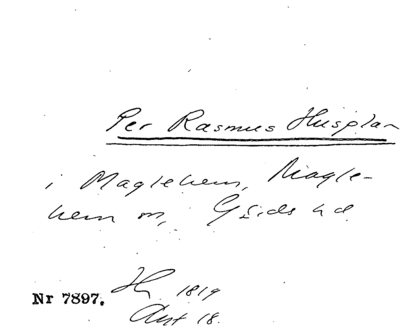 Per Rasmus Husplan
i Maglehem, Magle-
hem sn, Gärds hd
Nr 7897.
1819
18.